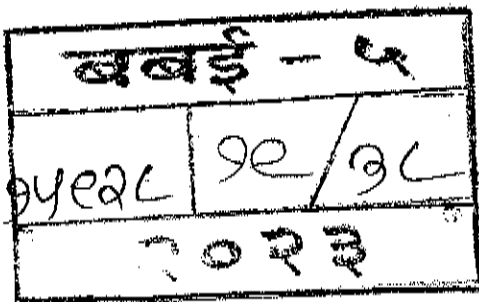 बबई - ५
१५९२८ १९ / ३८
२०२३